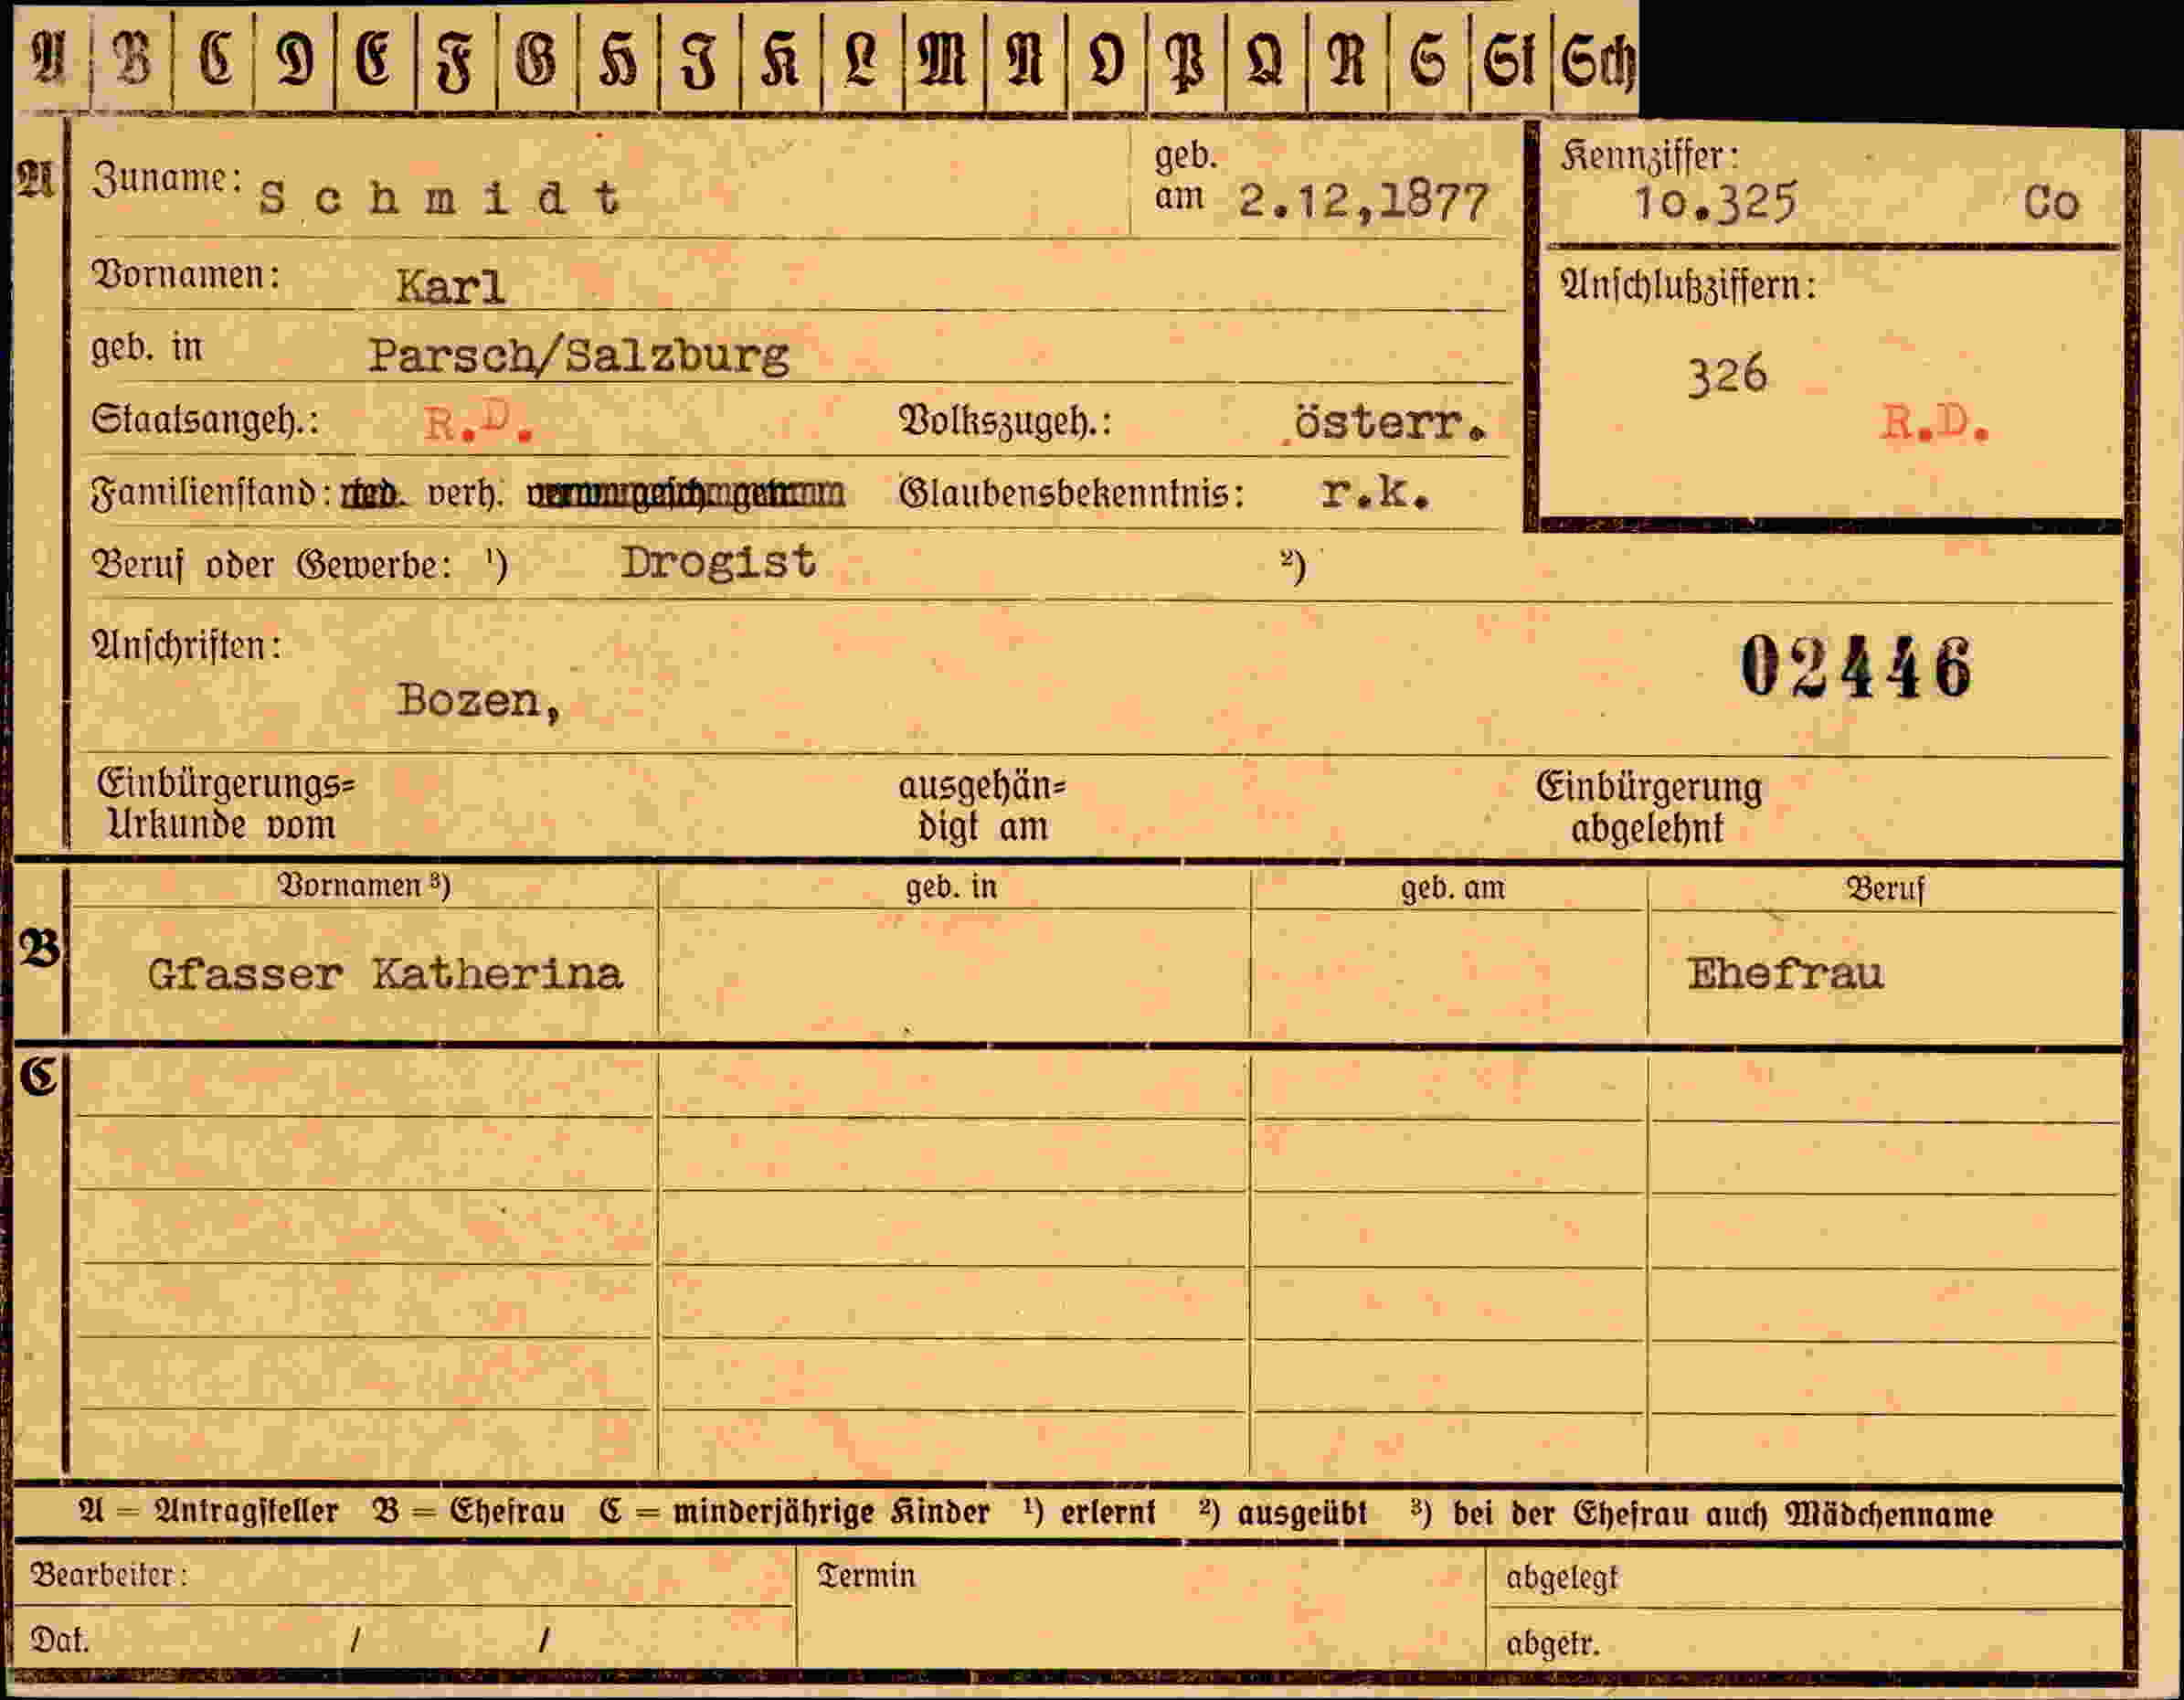 A B C D E F G H I K L M N O P Q R S St Sch
A Zuname: Schmidt geb. am 2.12,1877 Kennziffer: 10.325 Co
Vornamen: Karl Anschlußziffern:
geb. in Parsch/Salzburg 326
Staatsangeh.: R.D. Volkszugeh.: österr. R.D.
Familienstand: verh. Glaubensbekenntnis: r.k.
Beruf oder Gewerbe: ¹) Drogist ²)
Anschriften: 02446
Bozen,
Einbürgerungs= ausgehän= Einbürgerung
Urkunde vom digt am abgelehnt
Vornamen ³) geb. in geb. am Beruf
B Gfasser Katherina Ehefrau
C
A = Antragsteller B = Ehefrau C = minderjährige Kinder ¹) erlernt ²) ausgeübt ³) bei der Ehefrau auch Mädchenname
Bearbeiter: Termin abgelegt
Dat. / / abgetr.